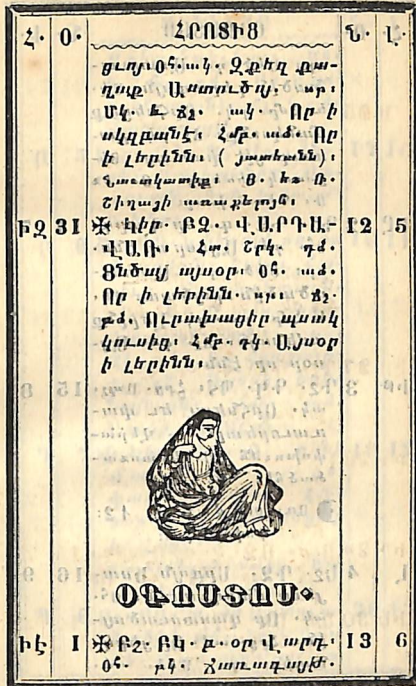 Հ. Օ. ՀՐՈՏԻՑ Ն. Լ.
ցւոյ։ Օհ. ակ. Զքեզ քա-
ղաք Աստուծոյ. սր։
Մկ. և ճշ. ակ. Որ ի
սկզբանէ։ Հմբ. աձ. Որ
ի լերինն. ( յատեանն )։
Շիղայի առաքելոյն։
ԻԶ 31 ✠ Կիր. ԲՁ. ՎԱՐԴԱ- 12 25
ՎԱՌ. Հտ. Շրկ. դձ.
Ցնծայ այսօր. Օհ. աձ.
Որ ի լերինն. սր. ճշ.
բձ. Ուրախացիր պսակ
կուսից. Համբ. դկ. Այսօր
ի լերինն.
ՕԳՈՍՏՈՍ.
ԻԷ 1 ✠ Բշ. ԲԿ. բ. օր Վարդ. 13 6
Օհ. րկ. Ճառագայթ.